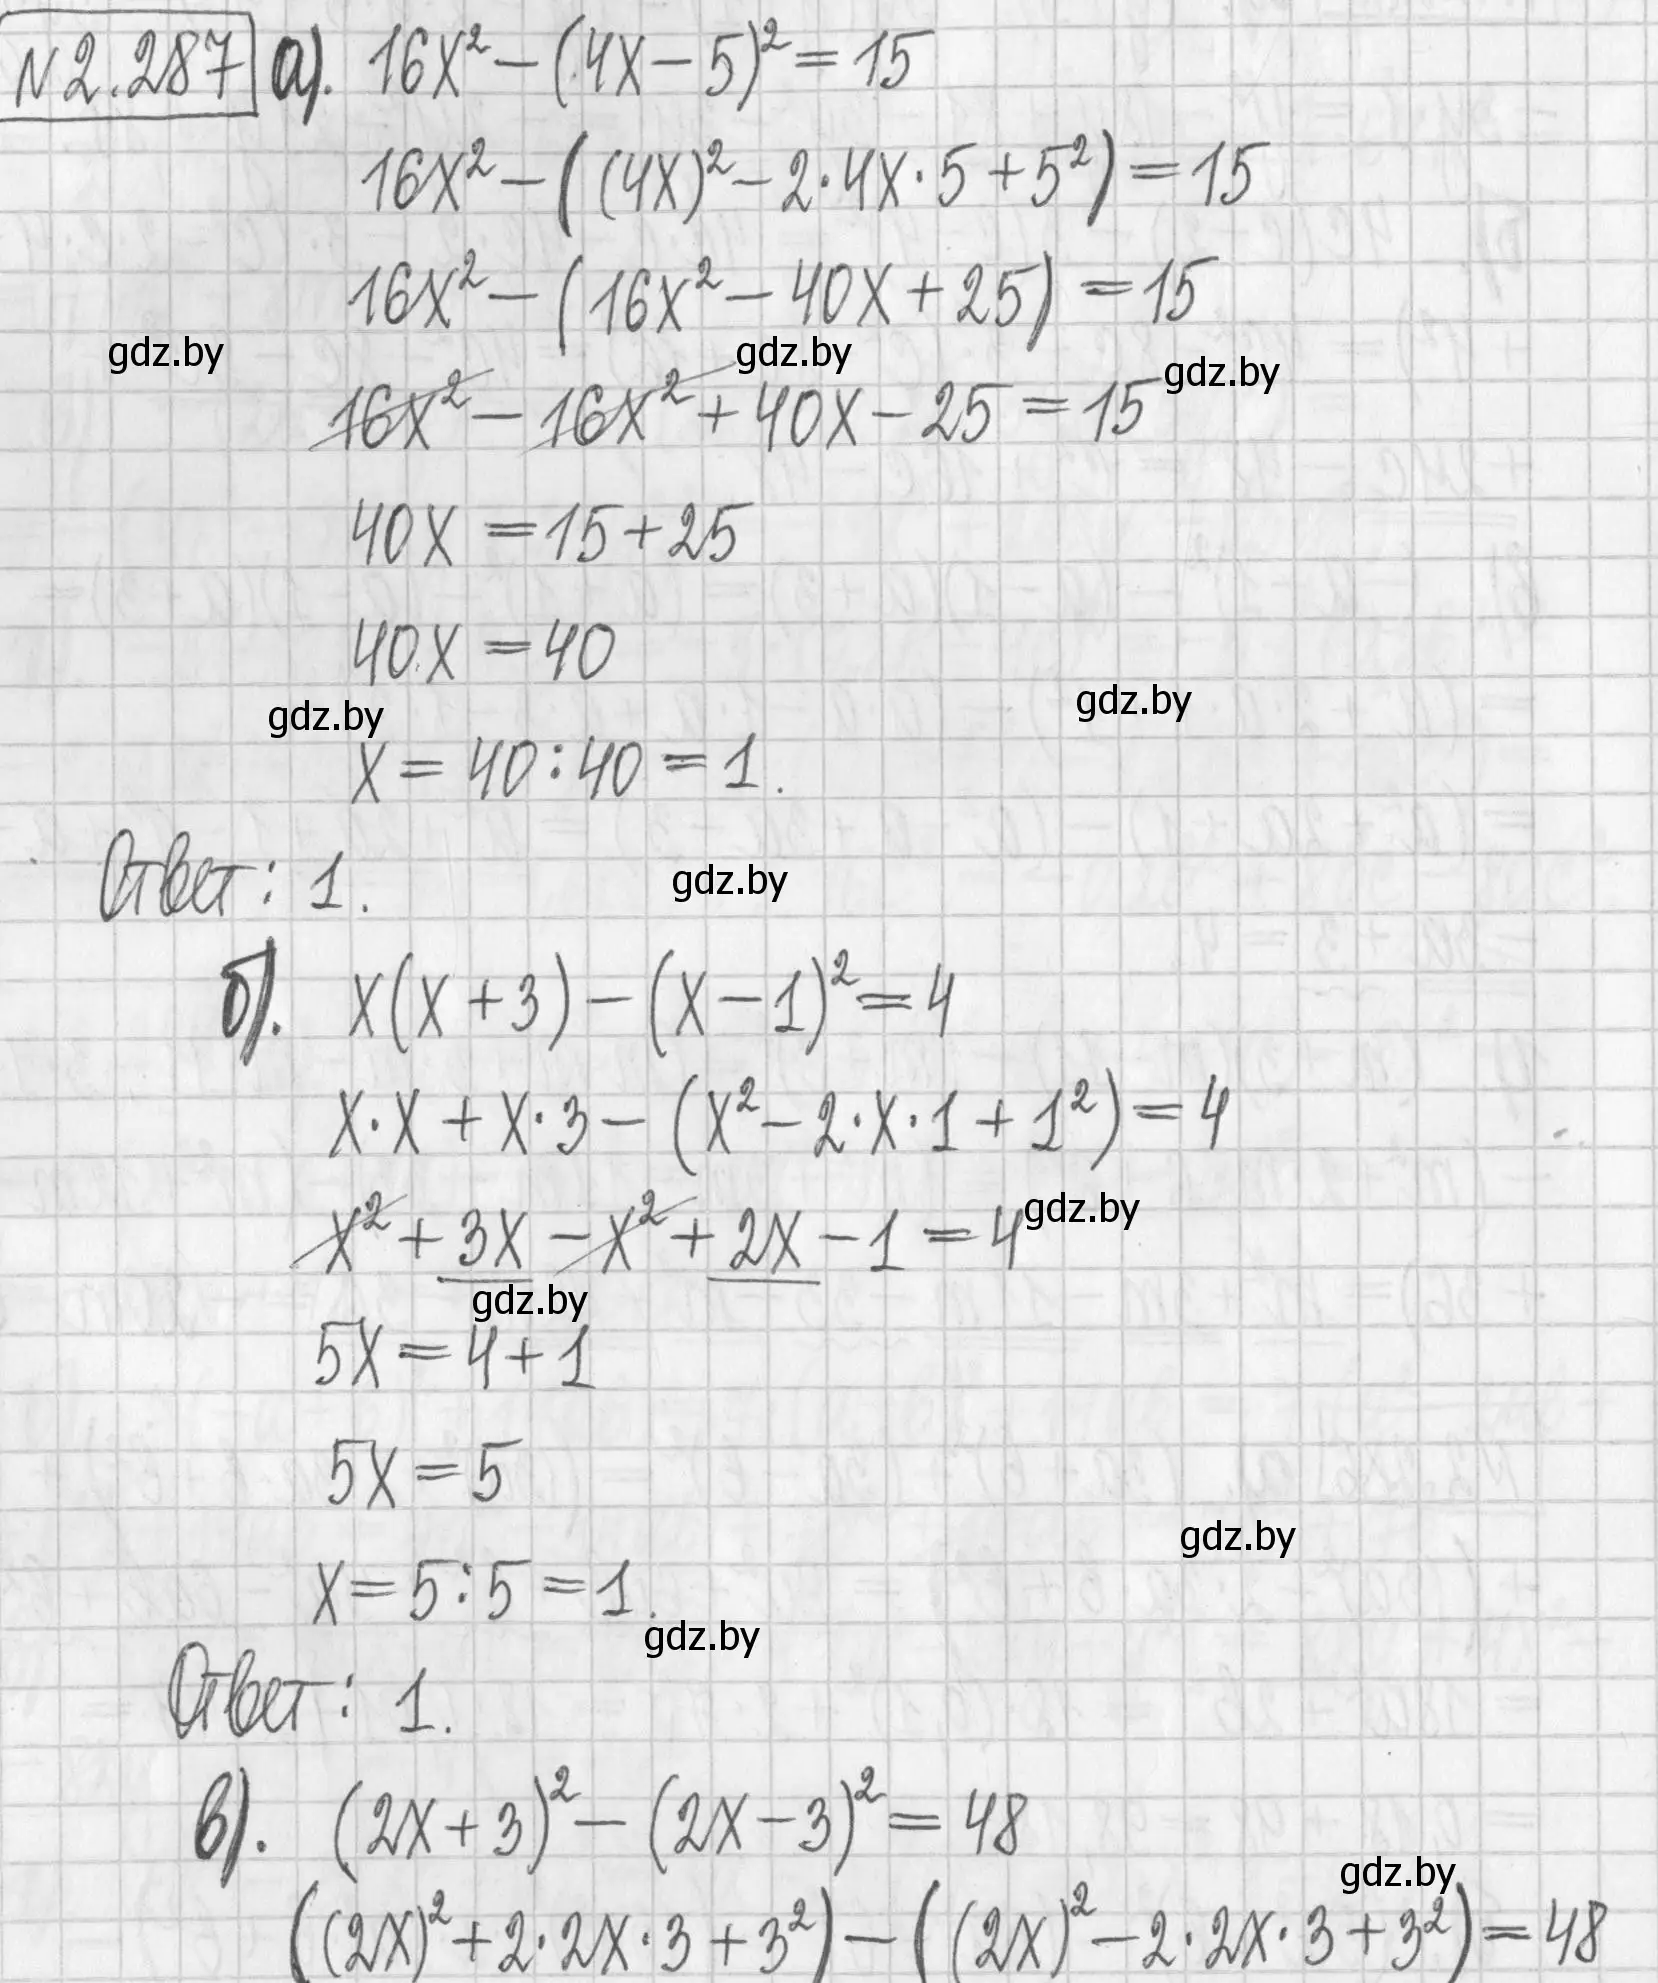 N 2.287 а). 16x² - (4x - 5)² = 15
16x² - ((4x)² - 2·4x·5 + 5²) = 15
16x² - (16x² - 40x + 25) = 15
gdz.by gdz.by gdz.by
16x² - 16x² + 40x - 25 = 15
40x = 15 + 25
40x = 40
gdz.by gdz.by
x = 40 : 40 = 1.
Ответ: 1.
gdz.by
б). x(x + 3) - (x - 1)² = 4
x·x + x·3 - (x² - 2·x·1 + 1²) = 4
x² + 3x - x² + 2x - 1 = 4
gdz.by
gdz.by
5x = 4 + 1
5x = 5
gdz.by
x = 5 : 5 = 1.
gdz.by
Ответ: 1.
в). (2x + 3)² - (2x - 3)² = 48
gdz.by
((2x)² + 2·2x·3 + 3²) - ((2x)² - 2·2x·3 + 3²) = 48